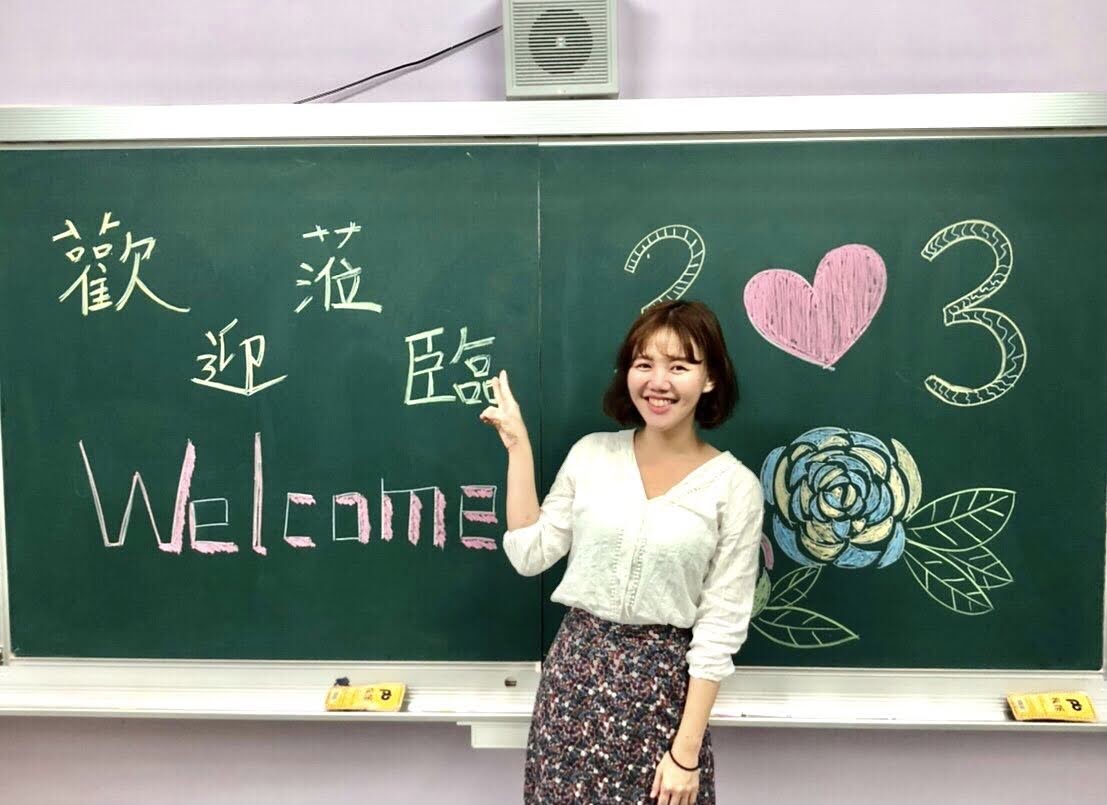 歡迎蒞臨
Welcome
2 3